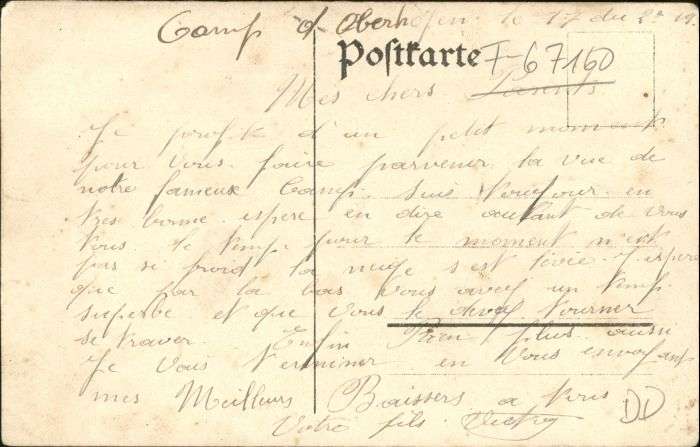 Camp d'Oberhofen, le 17 du 2e
Postkarte F-67160
Mes chers Parents
Je profite d'un petit moment
pour vous faire parvenir la vue de
notre fameux Camp. Suis toujour en
tres bonne espere en dire autant de vous
tous. le temp pour le moment n'est
pas si froid la neige s'est J'espere
que par la bas vous avez un temp
superbe et que vous le devez tourner
se Enfin Rien plus aussi
Je vous terminer en vous envoyant
mes Meilleurs Baissers a vous
Votre fils.
DD